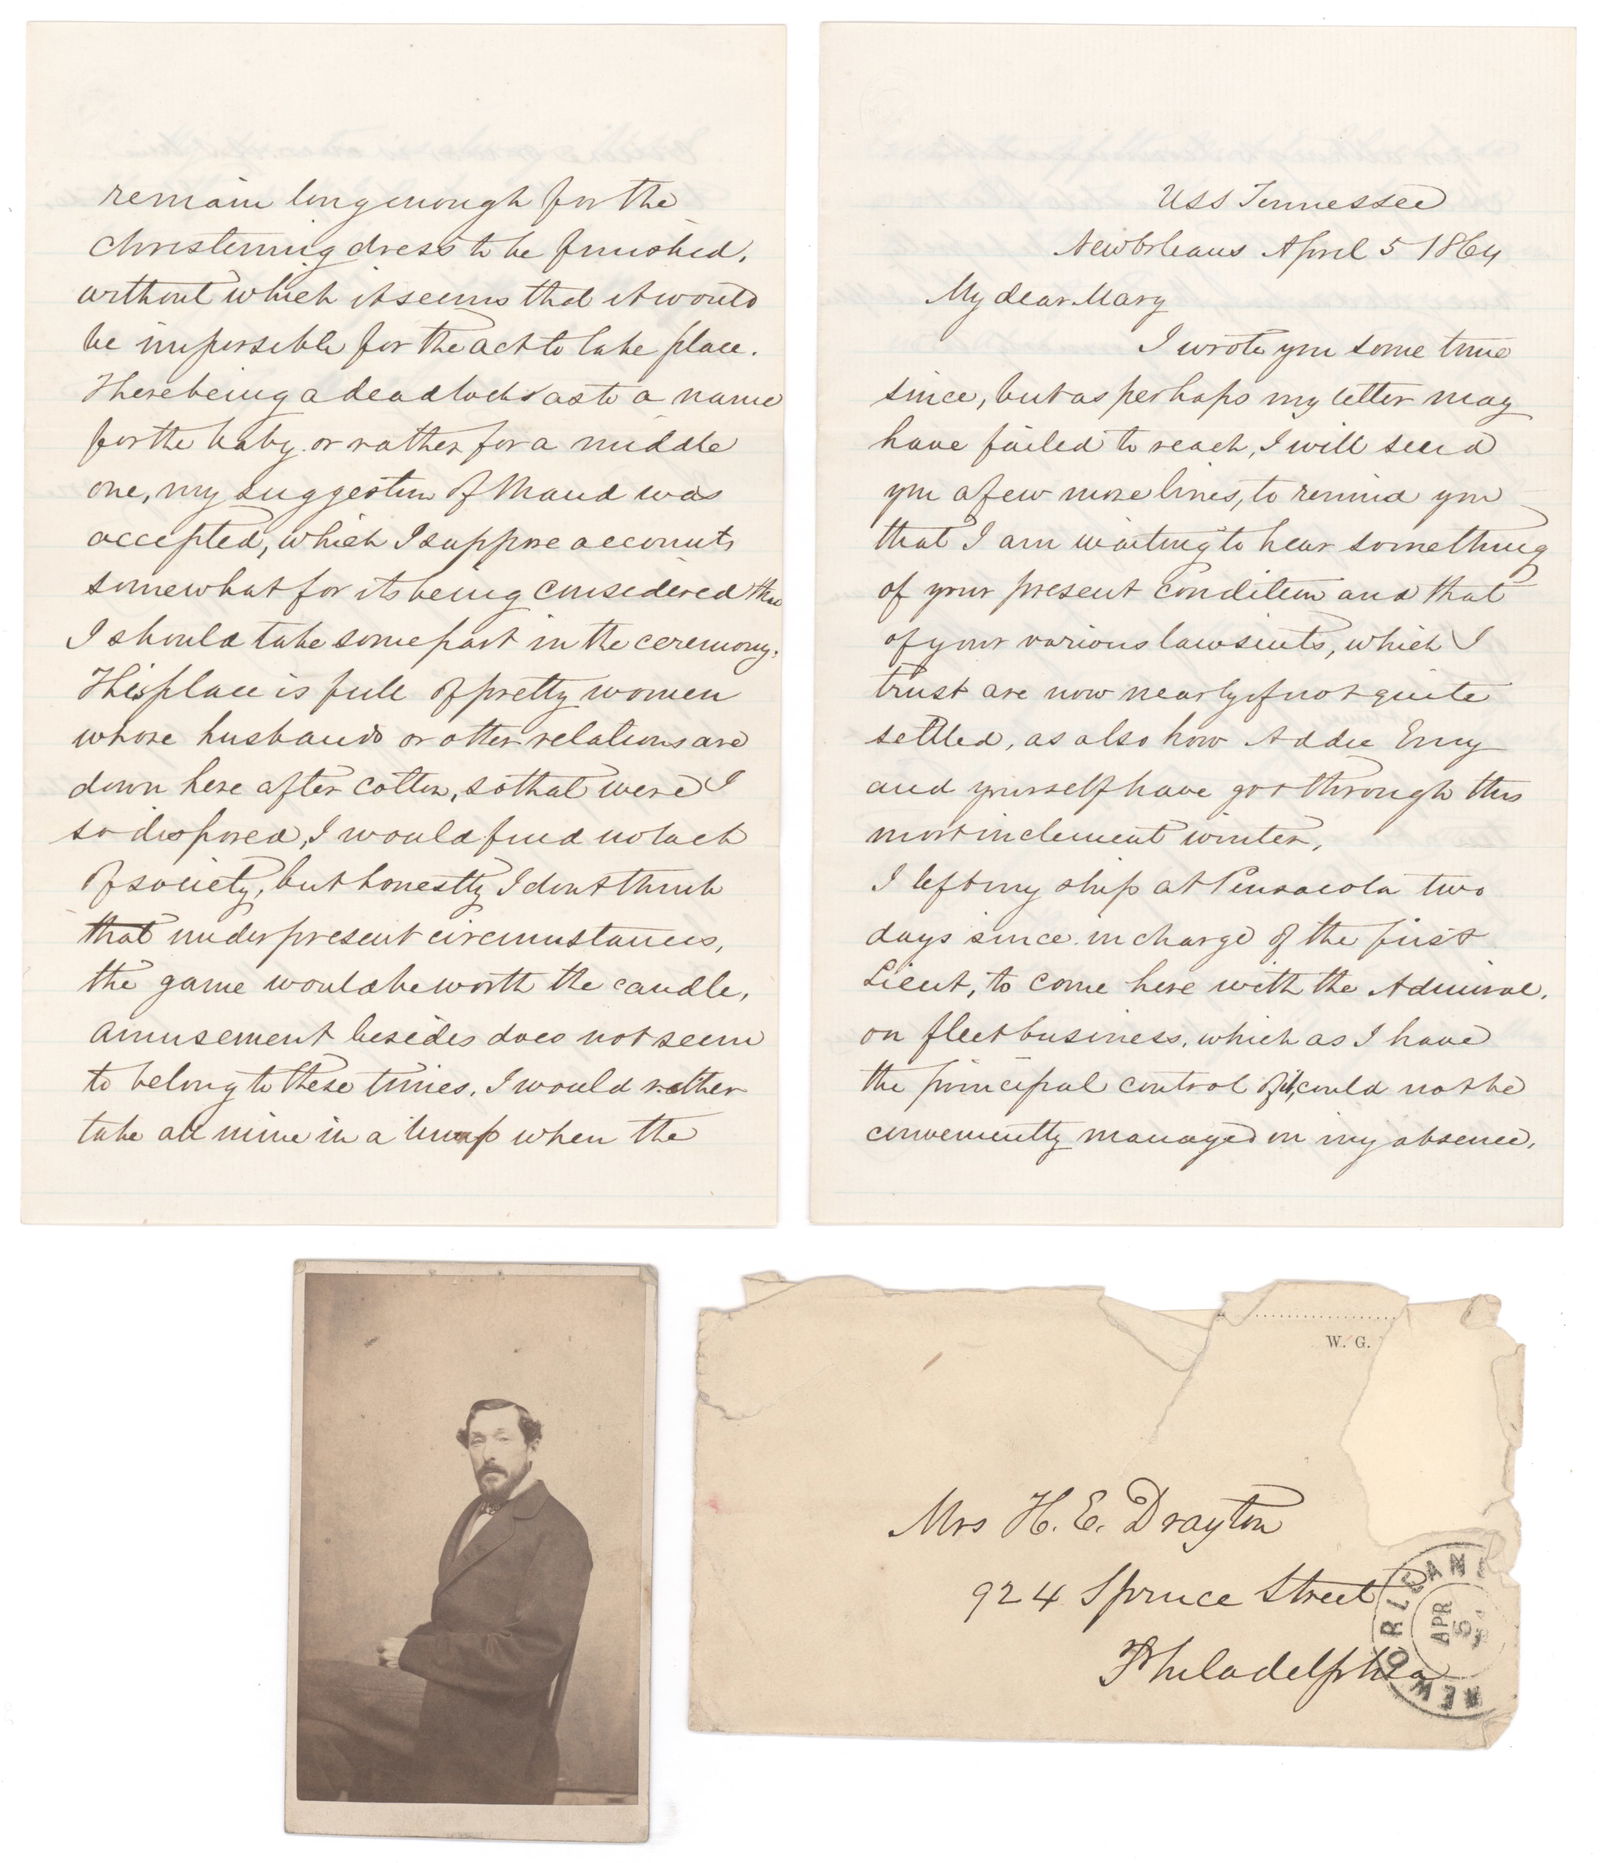 remain long enough for the
christening dress to be finished,
without which it seems that it would
be impossible for the act to take place.
There being a deadlock as to a name
for the baby, or rather for a middle
one, my suggestion of Maud was
accepted, which I suppose accounts
somewhat for its being considered that
I should take some part in the ceremony.
This place is full of pretty women
whose husbands or other relations are
down here after cotton, so that were I
so disposed, I would find no lack
of society, but honestly I dont think
that under present circumstances,
the game would be worth the candle,
amusement besides does not seem
to belong to these times. I would rather
take all mine in a lump when the
USS Tennessee
New Orleans April 5 1864
My dear Mary
I wrote you some time
since, but as perhaps my letter may
have failed to reach, I will send
you a few more lines, to remind you
that I am waiting to hear something
of your present condition and that
of your various lawsuits, which I
trust are now nearly if not quite
settled, as also how Addie Emy
and yourself have got through this
most inclement winter.
I left my ship at Pensacola two
days since in charge of the first
Lieut, to come here with the Admiral,
on fleet business, which as I have
the principal control of it, could not be
conveniently managed in my absence.
W. G.
Mrs H. E. Drayton
924 Spruce Street
Philadelphia
NEW ORLEANS
APR
5